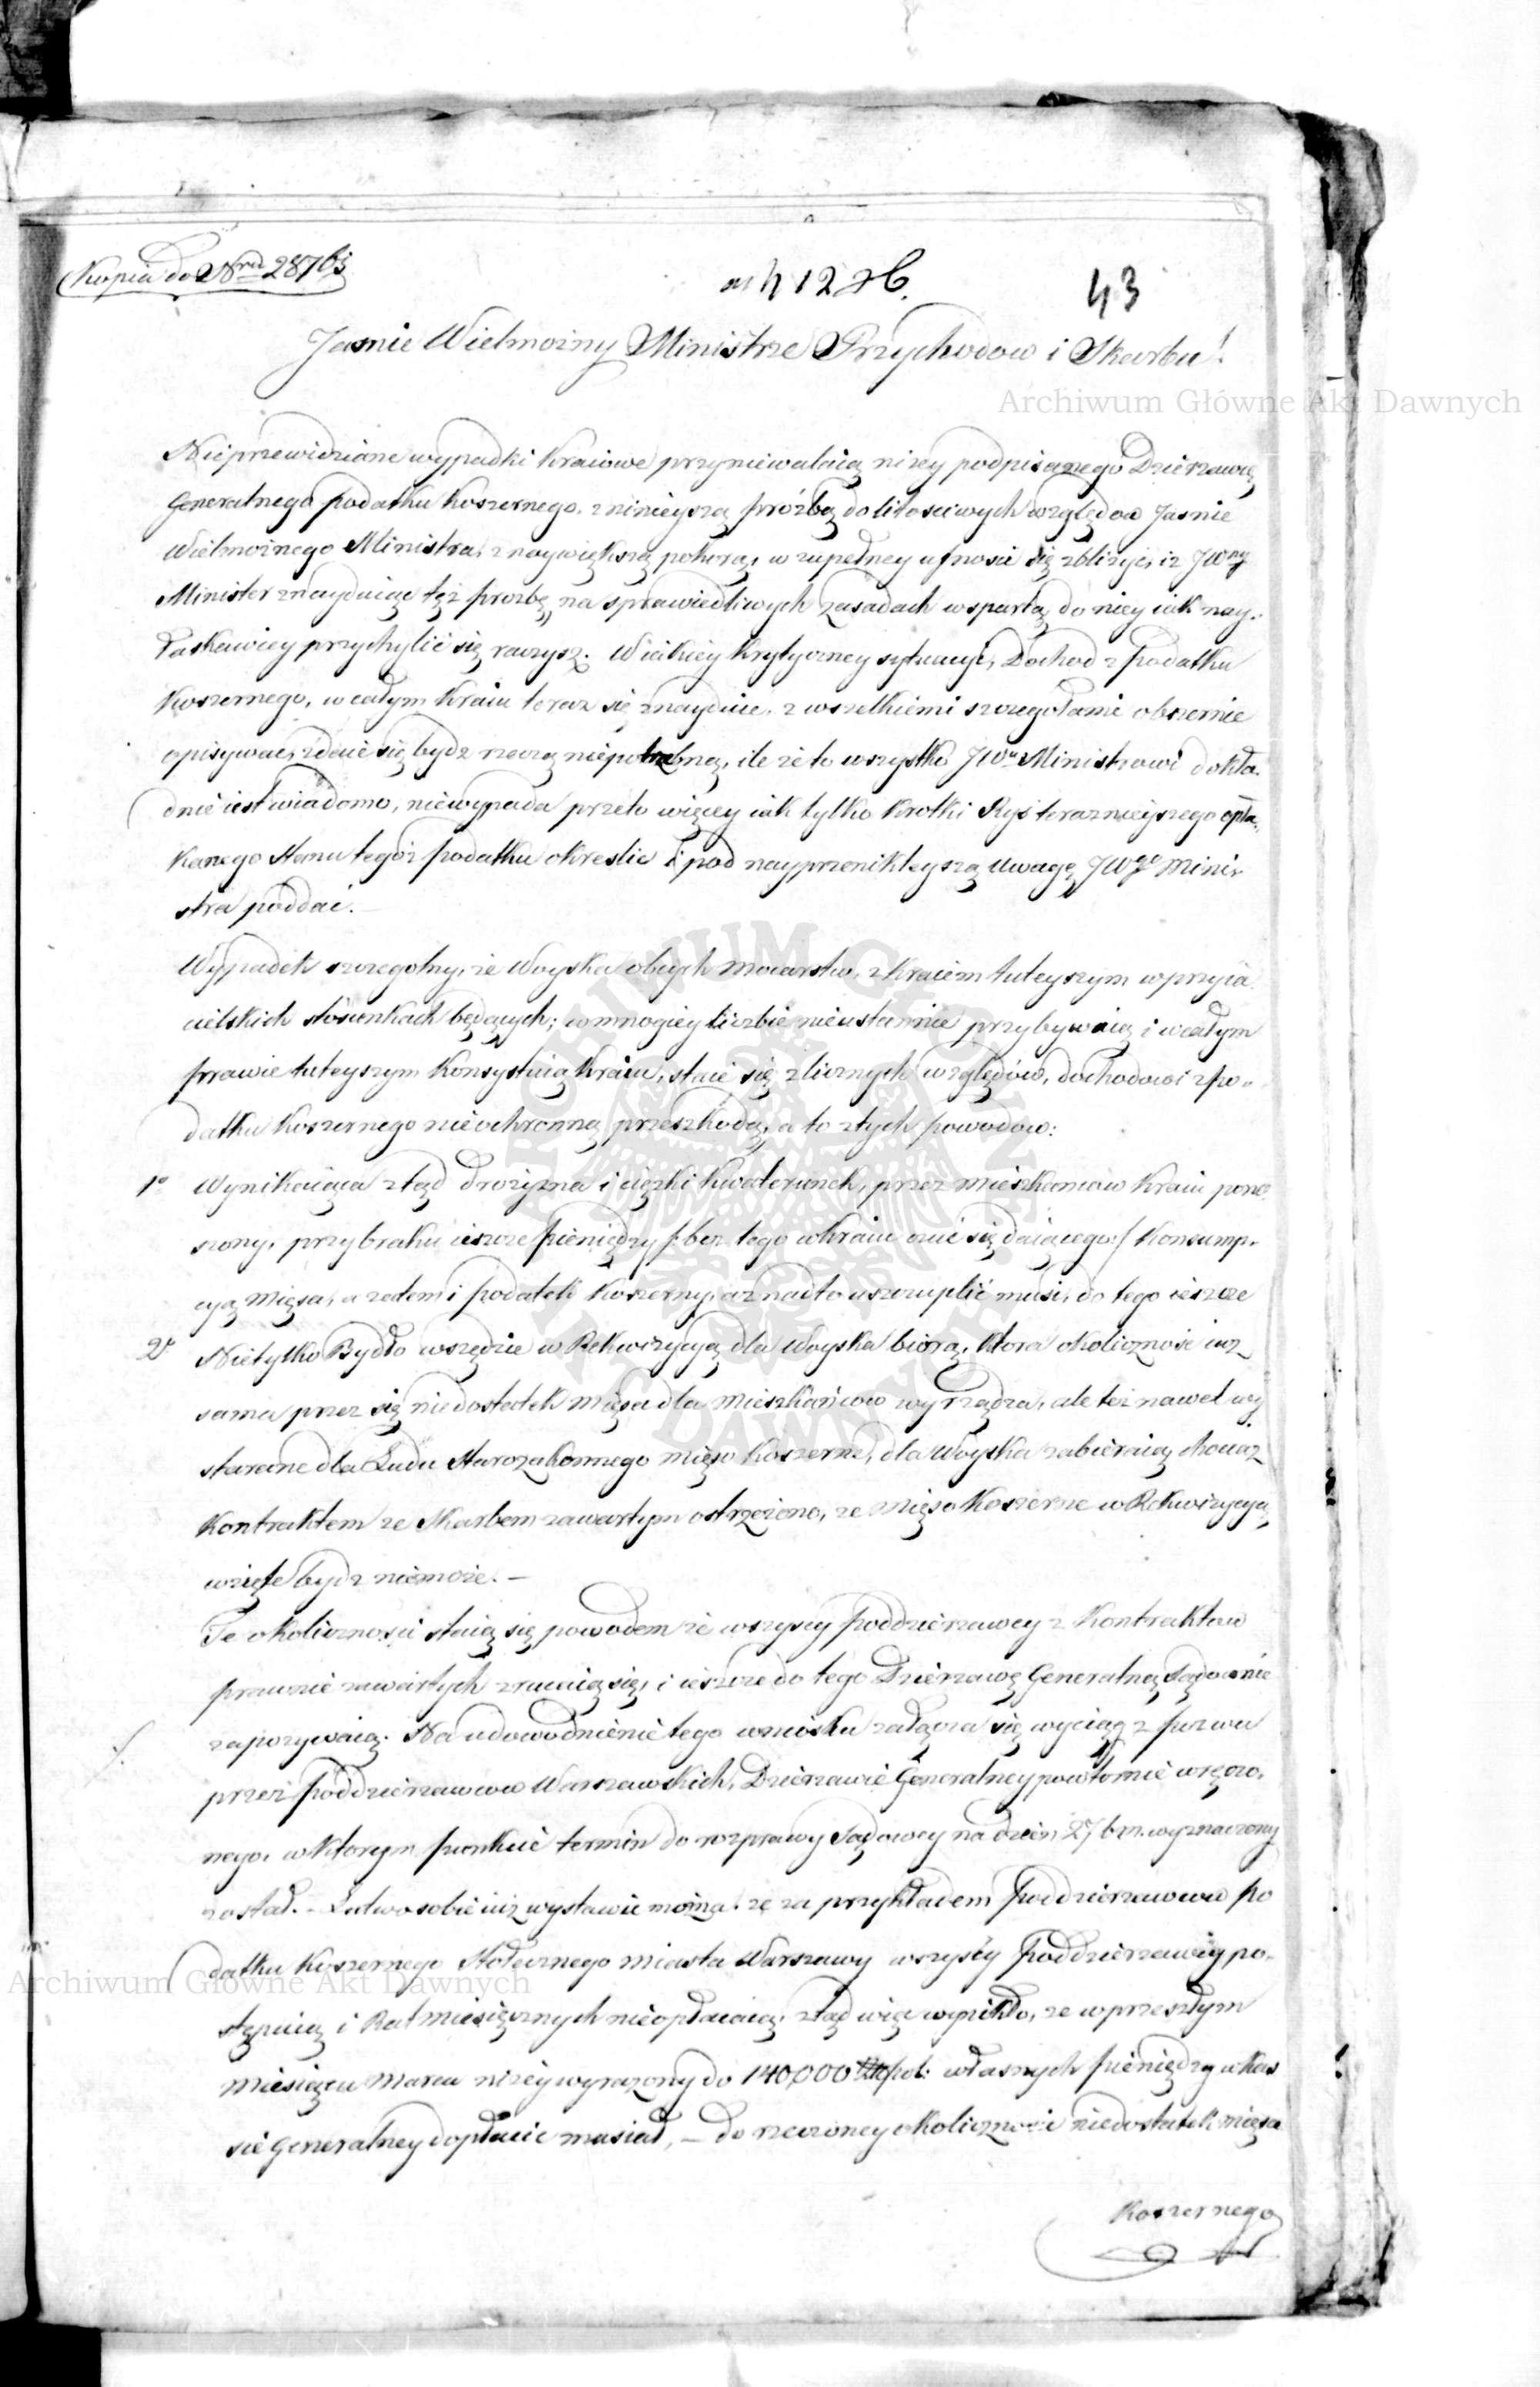 Kopia do Nro 28763
43
Jasnie Wielmożny Ministrze Przychodow i Skarbu!
Archiwum Główne Akt Dawnych
Nieprzewidziane wypadki Kraiowe przyniewalaią niżey podpisanego Dzierzawcę
Generalnego podatku Koszernego, z ninieyszą próźbą do litościwych względow Jasnie
Wielmożnego Ministra, z naywiększą pokorą, w zupełney ufności się zbliżyć, iż JWny
Minister znayduiąc tęż prozbę, na sprawiedliwych zasadach wspartą, do niey iak nay-
łaskawiey przychylić się raczysz. W iakiey krytyczney sytuacyi, Dochod z podatku
Koszernego, w całym Kraiu teraz się znayduie, z wszelkiemi szczegołami obszernie
opisywać, zdaie się bydz rzeczą niepotrzebną, ile że to wszystko JWu Ministrowi dokła-
dnie iest wiadomo, niewypada przeto więcey iak tylko krotki Rys terazniejszego opła-
kanego stanu tegoż podatku okreslić i pod nayprzenikleyszą uwagę JWgo Mini-
stra poddać.
Wypadek szczegolny, że Woyska obcych mocarstw, z Kraiem tuteyszym w przyia-
cielskich stosunkach będących; w mnogiey liczbie nieustannie przybywaią i w całym
prawie tuteyszym konsystuią Kraiu, staie się z licznych względów, dochodowi z po-
datku Koszernego nieochronną przeszkodą, a to z tych powodow:
1o Wynikaiąca ztąd drożyzna i ciężki kwaterunek, przez mieszkancow Kraiu pono-
szony, przy braku ieszcze pieniędzy /:bez tego w Kraiu czuć się daiącego:/ Konsump-
cyą mięsa, a zatem i podatek Koszerny, aż nadto uszczuplić musi, do tego ieszcze
2o Nietylko Bydło wszędzie w Rekwizycyą dla Woyska biorą, ktora okoliczność iuż
sama przez się niedostatek mięsa dla mieszkańcow wyrządza, ale też nawet wy
starane dla Ludu Starozakonnego mięso Koszerne, dla Woyska zabieraią chociaż
Kontraktem ze Skarbem zawartym ostrzeżono, że mięso Koszerne w Rekwizycyą
wzięte bydz niemoże. –
Te okoliczności staią się powodem że wszyscy poddzierzawcy z Kontraktow
prawnie zawartych zrzucaią się, i ieszcze do tego Dzierzawę Generalną Sądownie
zapozywaią. Na udowodnienie tego wniosku załącza się wyciąg z pozwu
./.
przez poddzierzawcow Warszawskich, Dzierzawie Generalney powtornie wręczo-
nego, w ktorym punkcie termin do rozprawy Sądowey na dzień 27 b.m. wyznaczony
został. – Łatwo sobie iuż wystawić można, że za przykładem poddzierzawcow po
datku Koszernego Stołecznego miasta Warszawy wszyscy poddzierzawcy po-
Archiwum Główne Akt Dawnych
stępuią i Rat miesięcznych nieopłacaią, ztąd więc wynikło, że w przeszłym
miesiącu Marcu niżey wyrażony do 140,000 Złpol: własnych pieniędzy w Kas
sie Generalney dopłacić musiał, – do rzeczoney okoliczności niedostatek mięsa
Koszernego